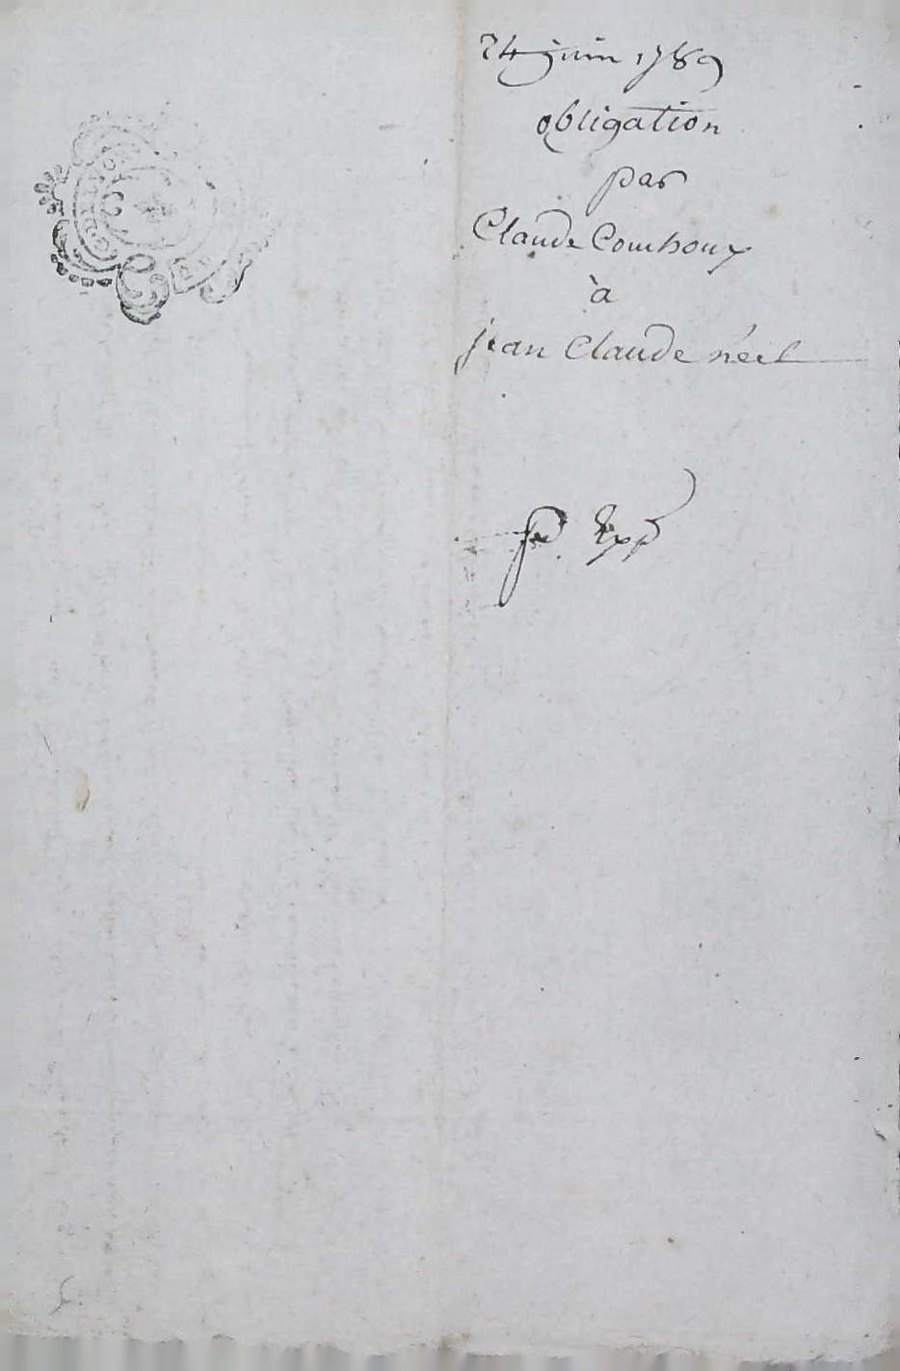 24 juin 1789
obligation
par
Claude Couhoux
à
jean Claude néel
Exp